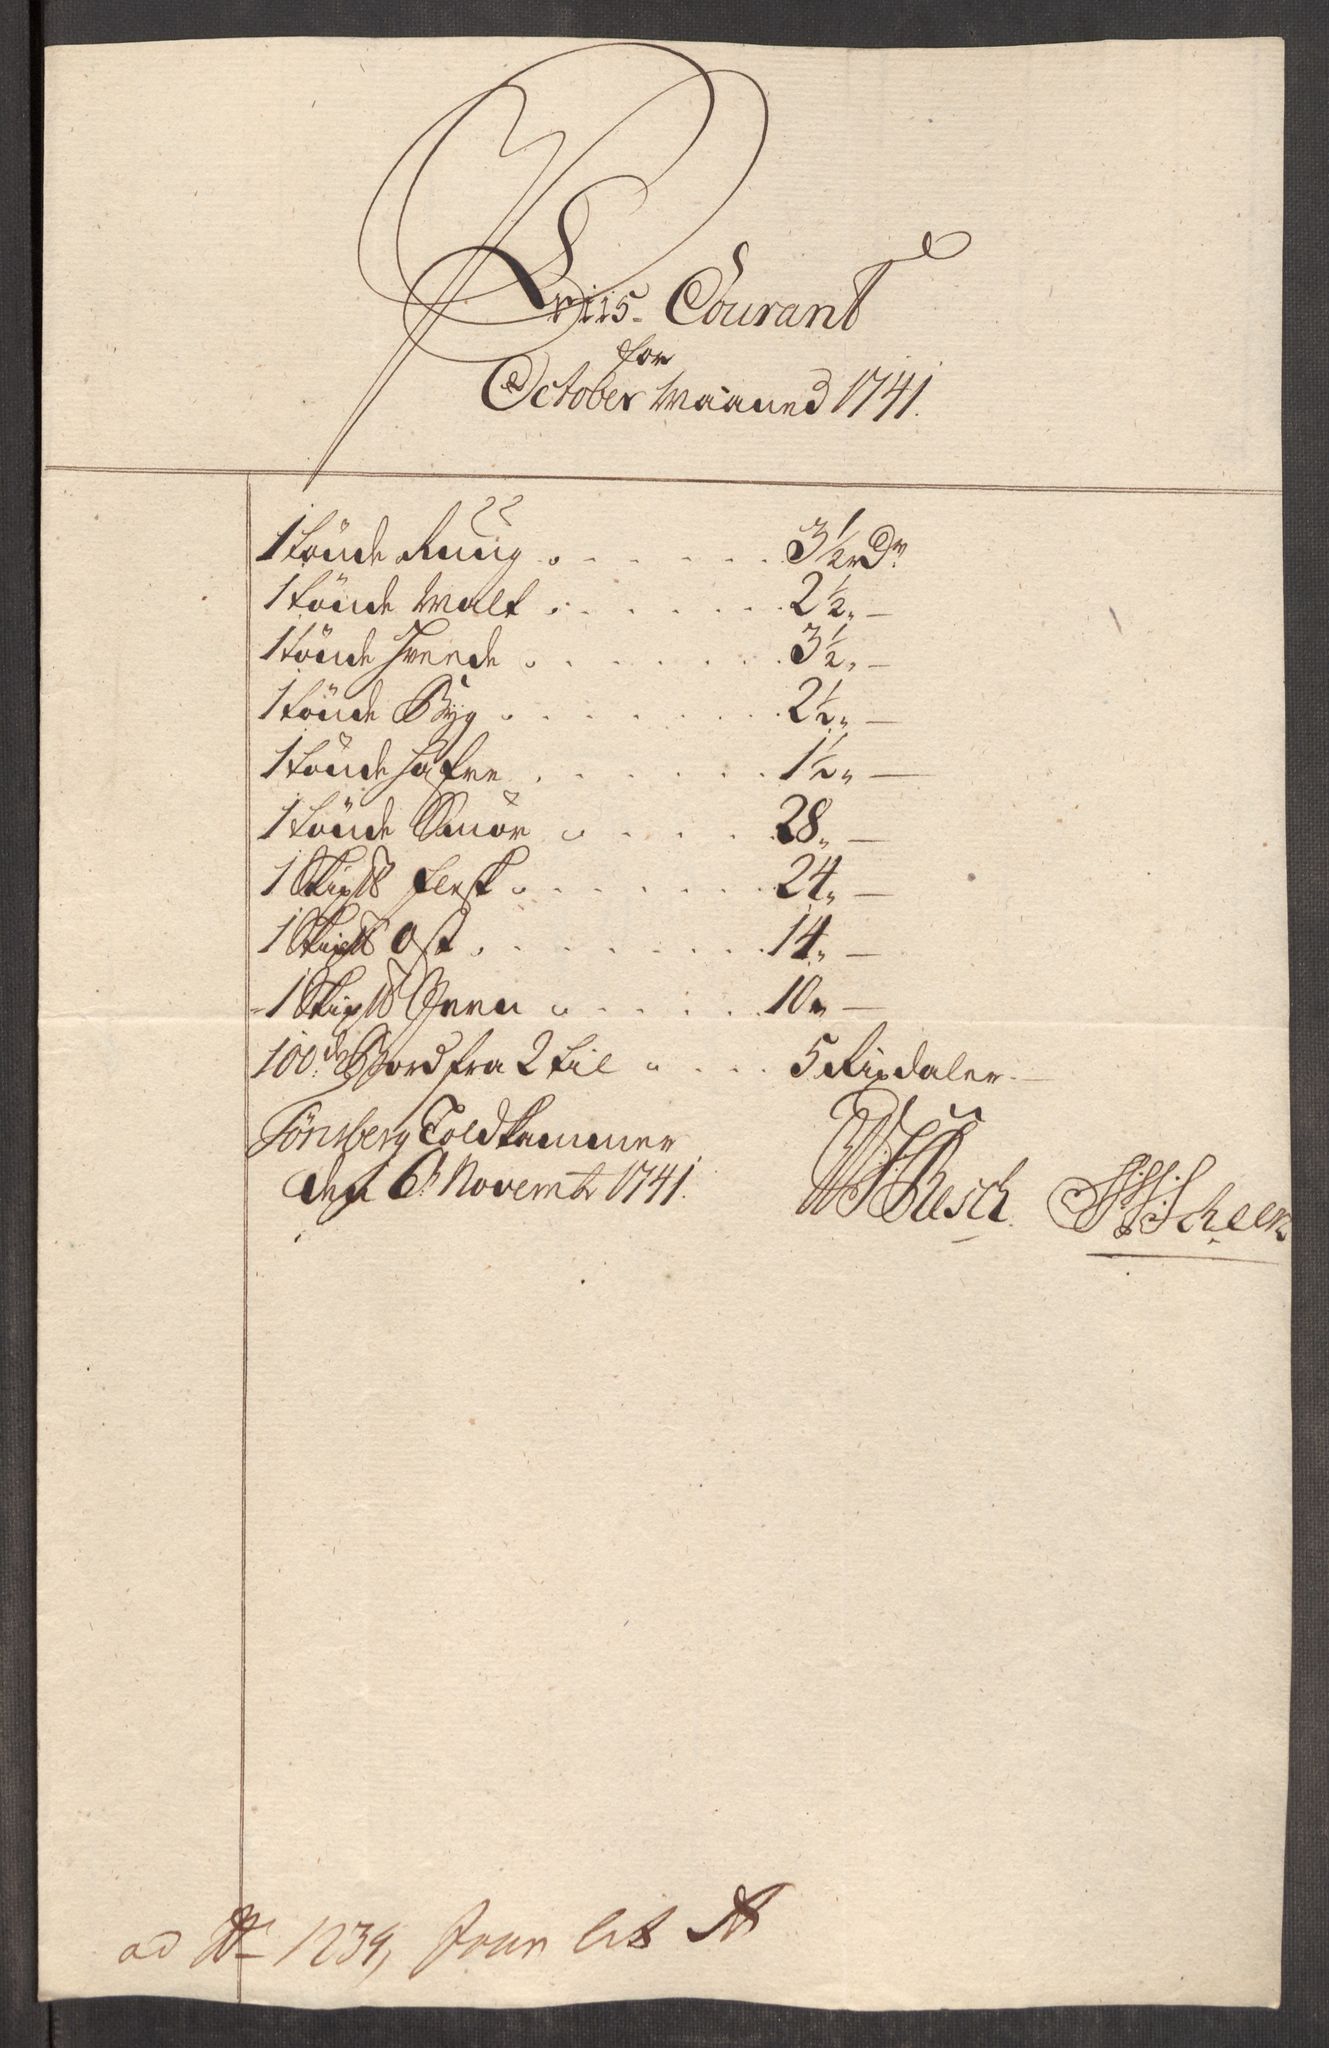 Priis-Courant
for
October Maaned 1741.
1 tönde Ruug . . . . . . 3½ rDr
1 tönde Malt . . . . . . 2½ „ —
1 tönde Hveede . . . . . . 3½ „ —
1 tönde Byg . . . . . . 2½ „ —
1 tönde Hafre . . . . . . 1½ „ —
1 tönde Smör . . . . . 28 „ —
1 Skip℔ flesk . . . . . . 24 „ —
1 Skip℔ Ost . . . . . . 14 „ —
1 Skip℔ Jern . . . . . 10 „ —
100de Bord fra 2 til . . . . 5 Rixdaler —
Tönsberg Toldkammer
den 6t Novembr 1741.
Resch. Scheen
ad No 1239, Jour lit A